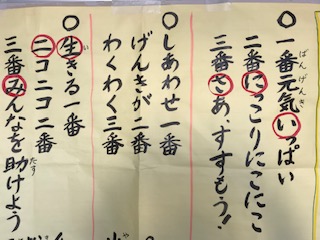 〇一番元気いっぱい
二番にっこりにこにこ
三番さあ、すすもう！
〇しあわせ一番
げんきが二番
わくわく三番
〇生きる一番
二コニコ二番
三番みんなを助けよう